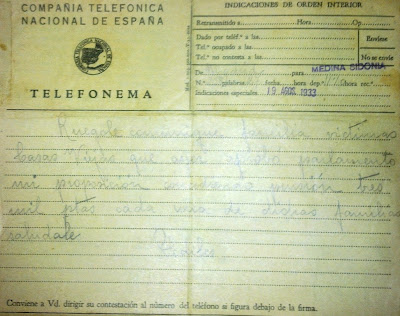 COMPAÑIA TELEFONICA
NACIONAL DE ESPAÑA
TELEFONEMA
INDICACIONES DE ORDEN INTERIOR
Retransmitido a Hora Op.
Dado por teléf.º a las
Tel.º ocupado a las
Tel.º no contesta a las
Enviese
No se envíe
De para MEDINA SIDONIA
N.º palabras fecha hora dep. hora rec.
Indicaciones especiales 19 AGOS. 1933
Ruegole comunique familia victimas
Casas Viejas que ayer aprobo parlamento
mi proposicion concediendo pensión tres
mil ptas cada una de dichas familias
saludale
Conviene a Vd. dirigir su contestación al número del teléfono si figura debajo de la firma.